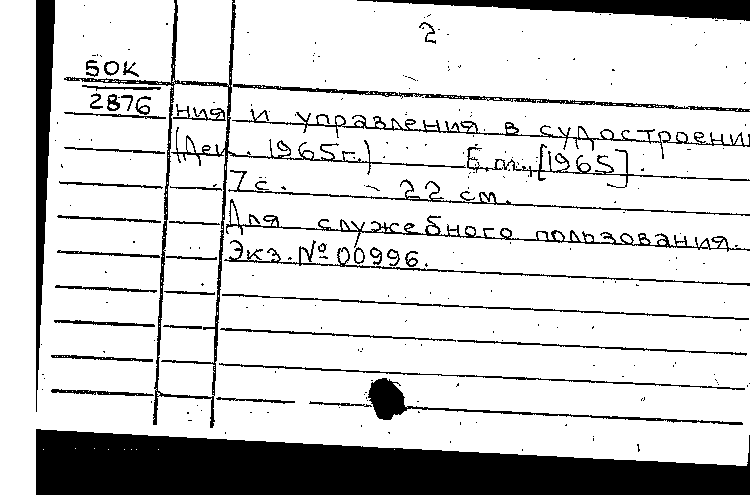 2
БОК
2876
ния и управления в судостроении
(Дек. 1965г.) Б.м., [1965].
7 с. - 22 см.
Для служебного пользования.
Экз. № 00996.